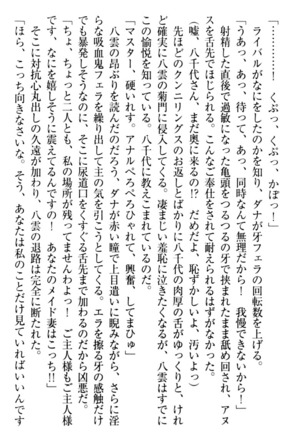 「………！　くぷっ、くぷっ、かぽっ！」
　ライバルがなにをしたのかを知り、ダナが牙フェラの回転数を上げる。
「うあっ、あっ、待って、あっ、同時なんて無理だから！　我慢できないから！」
　射精した直後で過敏になった亀頭をつるつるの牙で挟まれたまま舐め回され、アヌ
スを舌先でくすぐられる。こんなご奉仕をされて耐えられるはずがなかった。
（嘘、八千代さん、まだ奥に来るの⁉　だめだよ、恥ずかしいよ、汚いよっ）
　先ほどのクンニリングスのお返しとばかりに八千代の肉厚の舌がゆっくりと、けれ
ど確実に八雲の菊門に侵入してくる。凄まじい羞恥に泣きたくなるが、八雲はすでに
この愉悦を知っている。八千代に教えこまれているのだ。
「マスター、硬いれす。アナルぺろぺろひゃれて、興奮、してまひゅ」
　八雲の昂ぶりを読んだのだろう、ダナが赤い瞳で上目遣いに睨みながら、さらに淫
らな吸血鬼フェラを繰り出して主の気を引こうとしてくる。エラを擦る牙の感触だけ
でも暴発しそうなのに、そこに尿道口をくすぐる舌先まで加わるのだから凶悪だ。
「ちょ、ちょっと二人とも、私の場所が残ってませんわよっ！　ご主人様も、ご主人様
です、そんなに嬉しそうに震えてるんですの！　あなたのメイド妻はこっち‼」
　そこに対抗心丸出しの久遠が加わり、八雲の退路は完全に断たれた。
「ほら、こっち向きなさいな。そう、あなたは私のことだけ見ていればいいんです